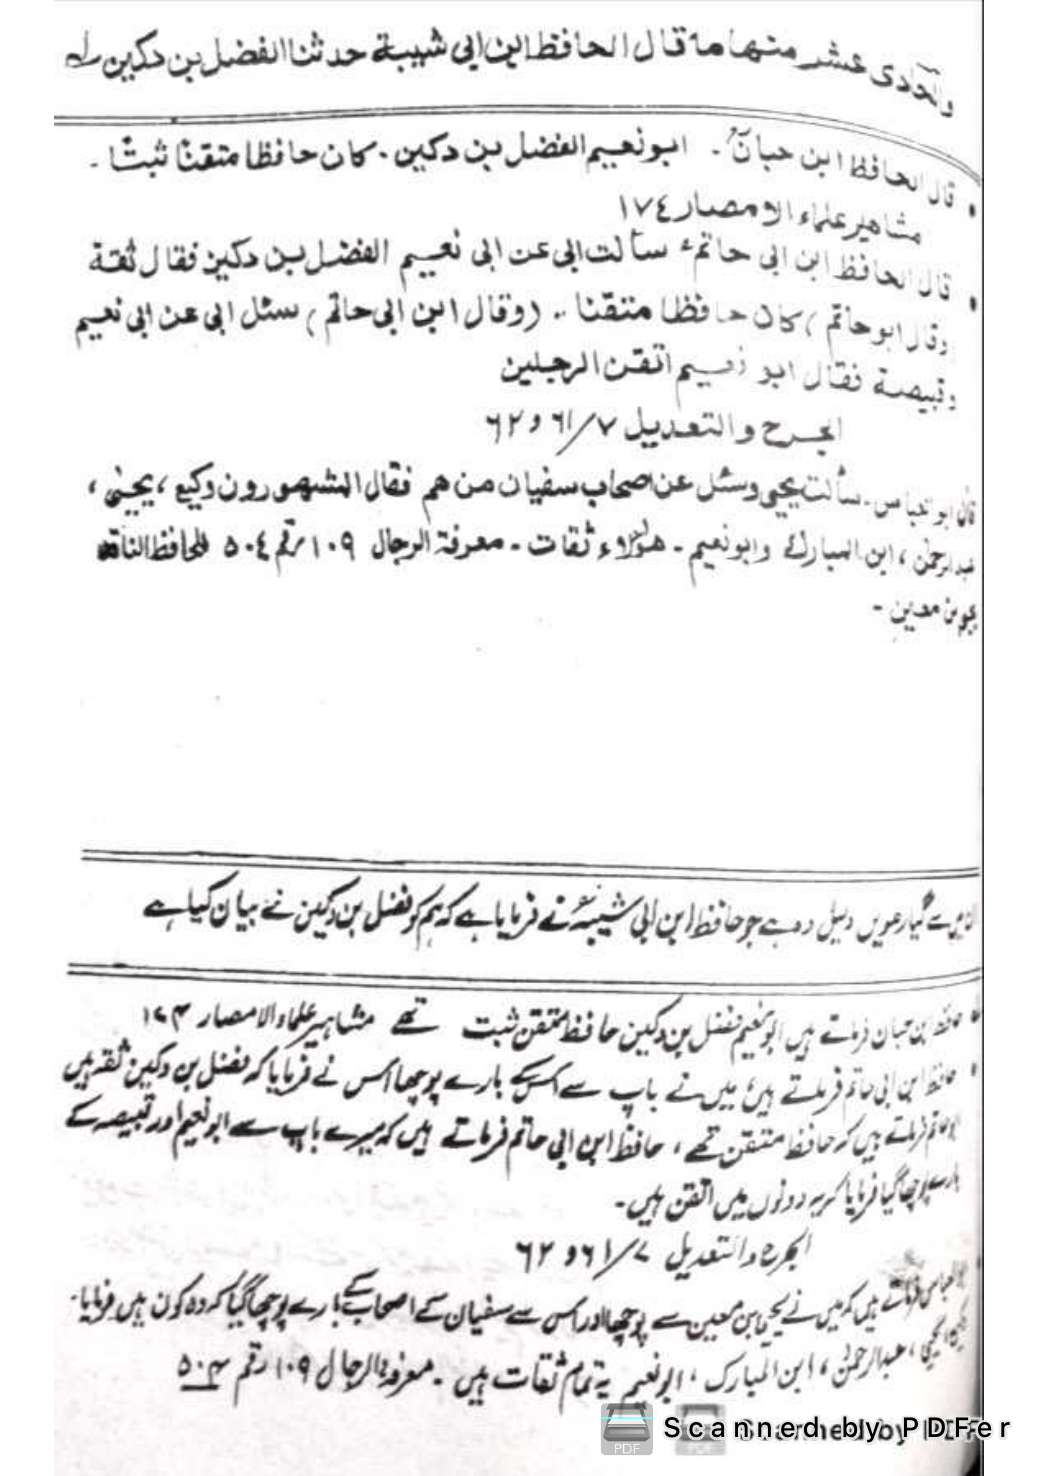 والحادی عشر منها ما قال الحافظ ابن ابی شیبة حدثنا الفضل بن دکین
• قال الحافظ ابن حبان ۔ ابو نعیم الفضل بن دکین ۔ کان حافظا متقنًا ثبتًا ۔
مشاهیر علماء الامصار ١٧٤
• قال الحافظ ابن ابی حاتم سألت ابی عن ابی نعیم الفضل بن دکین فقال ثقة
(وقال ابو حاتم) کان حافظا متقنا ۔ (وقال ابن ابی حاتم) سئل ابی عن ابی نعیم
وقبیصة فقال ابو نعیم اتقن الرجلین
الجرح والتعدیل ٧/٦١ و ٦٢
قال ابو العباس ۔ سألت یحیی وسئل عن اصحاب سفیان من هم فقال المشهورون وکیع ، یحیٰی ،
عبدالرحمٰن ، ابن المبارك وابو نعیم ۔ هؤلاء ثقات ۔ معرفة الرجال ١٠٩ رقم ٥٠٤ للحافظ الناقد
بن معین ۔
سے گیارھویں دلیل وہ ہے جو حافظ ابن ابی شیبہؒ نے فرمایا ہے کہ ہم کو فضل بن دکین نے بیان کیا ہے
• حافظ ابن حبان فرماتے ہیں ابو نعیم فضل بن دکین حافظ متقن ثبت تھے مشاہیر علماء الامصار ۱۷۴
• حافظ ابن ابی حاتم فرماتے ہیں میں نے باپ سے اس کے بارے پوچھا اس نے فرمایا کہ فضل بن دکین ثقہ ہیں
ابوحاتم فرماتے ہیں کہ حافظ متقن تھے ، حافظ ابن ابی حاتم فرماتے ہیں کہ میرے باپ سے ابو نعیم اور قبیصہ کے
بارے پوچھا گیا فرمایا کہ یہ دونوں میں اتقن ہیں ۔
الجرح والتعدیل ٧/٦١ و ٦٢
ابوالعباس فرماتے ہیں کہ میں نے یحیی بن معین سے پوچھا اور اس سے سفیان کے اصحاب کے بارے پوچھا گیا کہ وہ کون ہیں فرمایا ۔
یحیٰی ، عبدالرحمٰن ، ابن المبارک ، ابو نعیم یہ تمام ثقات ہیں ۔ معرفۃ الرجال ١٠٩ رقم ٥٠٤
Scanned by PDFer